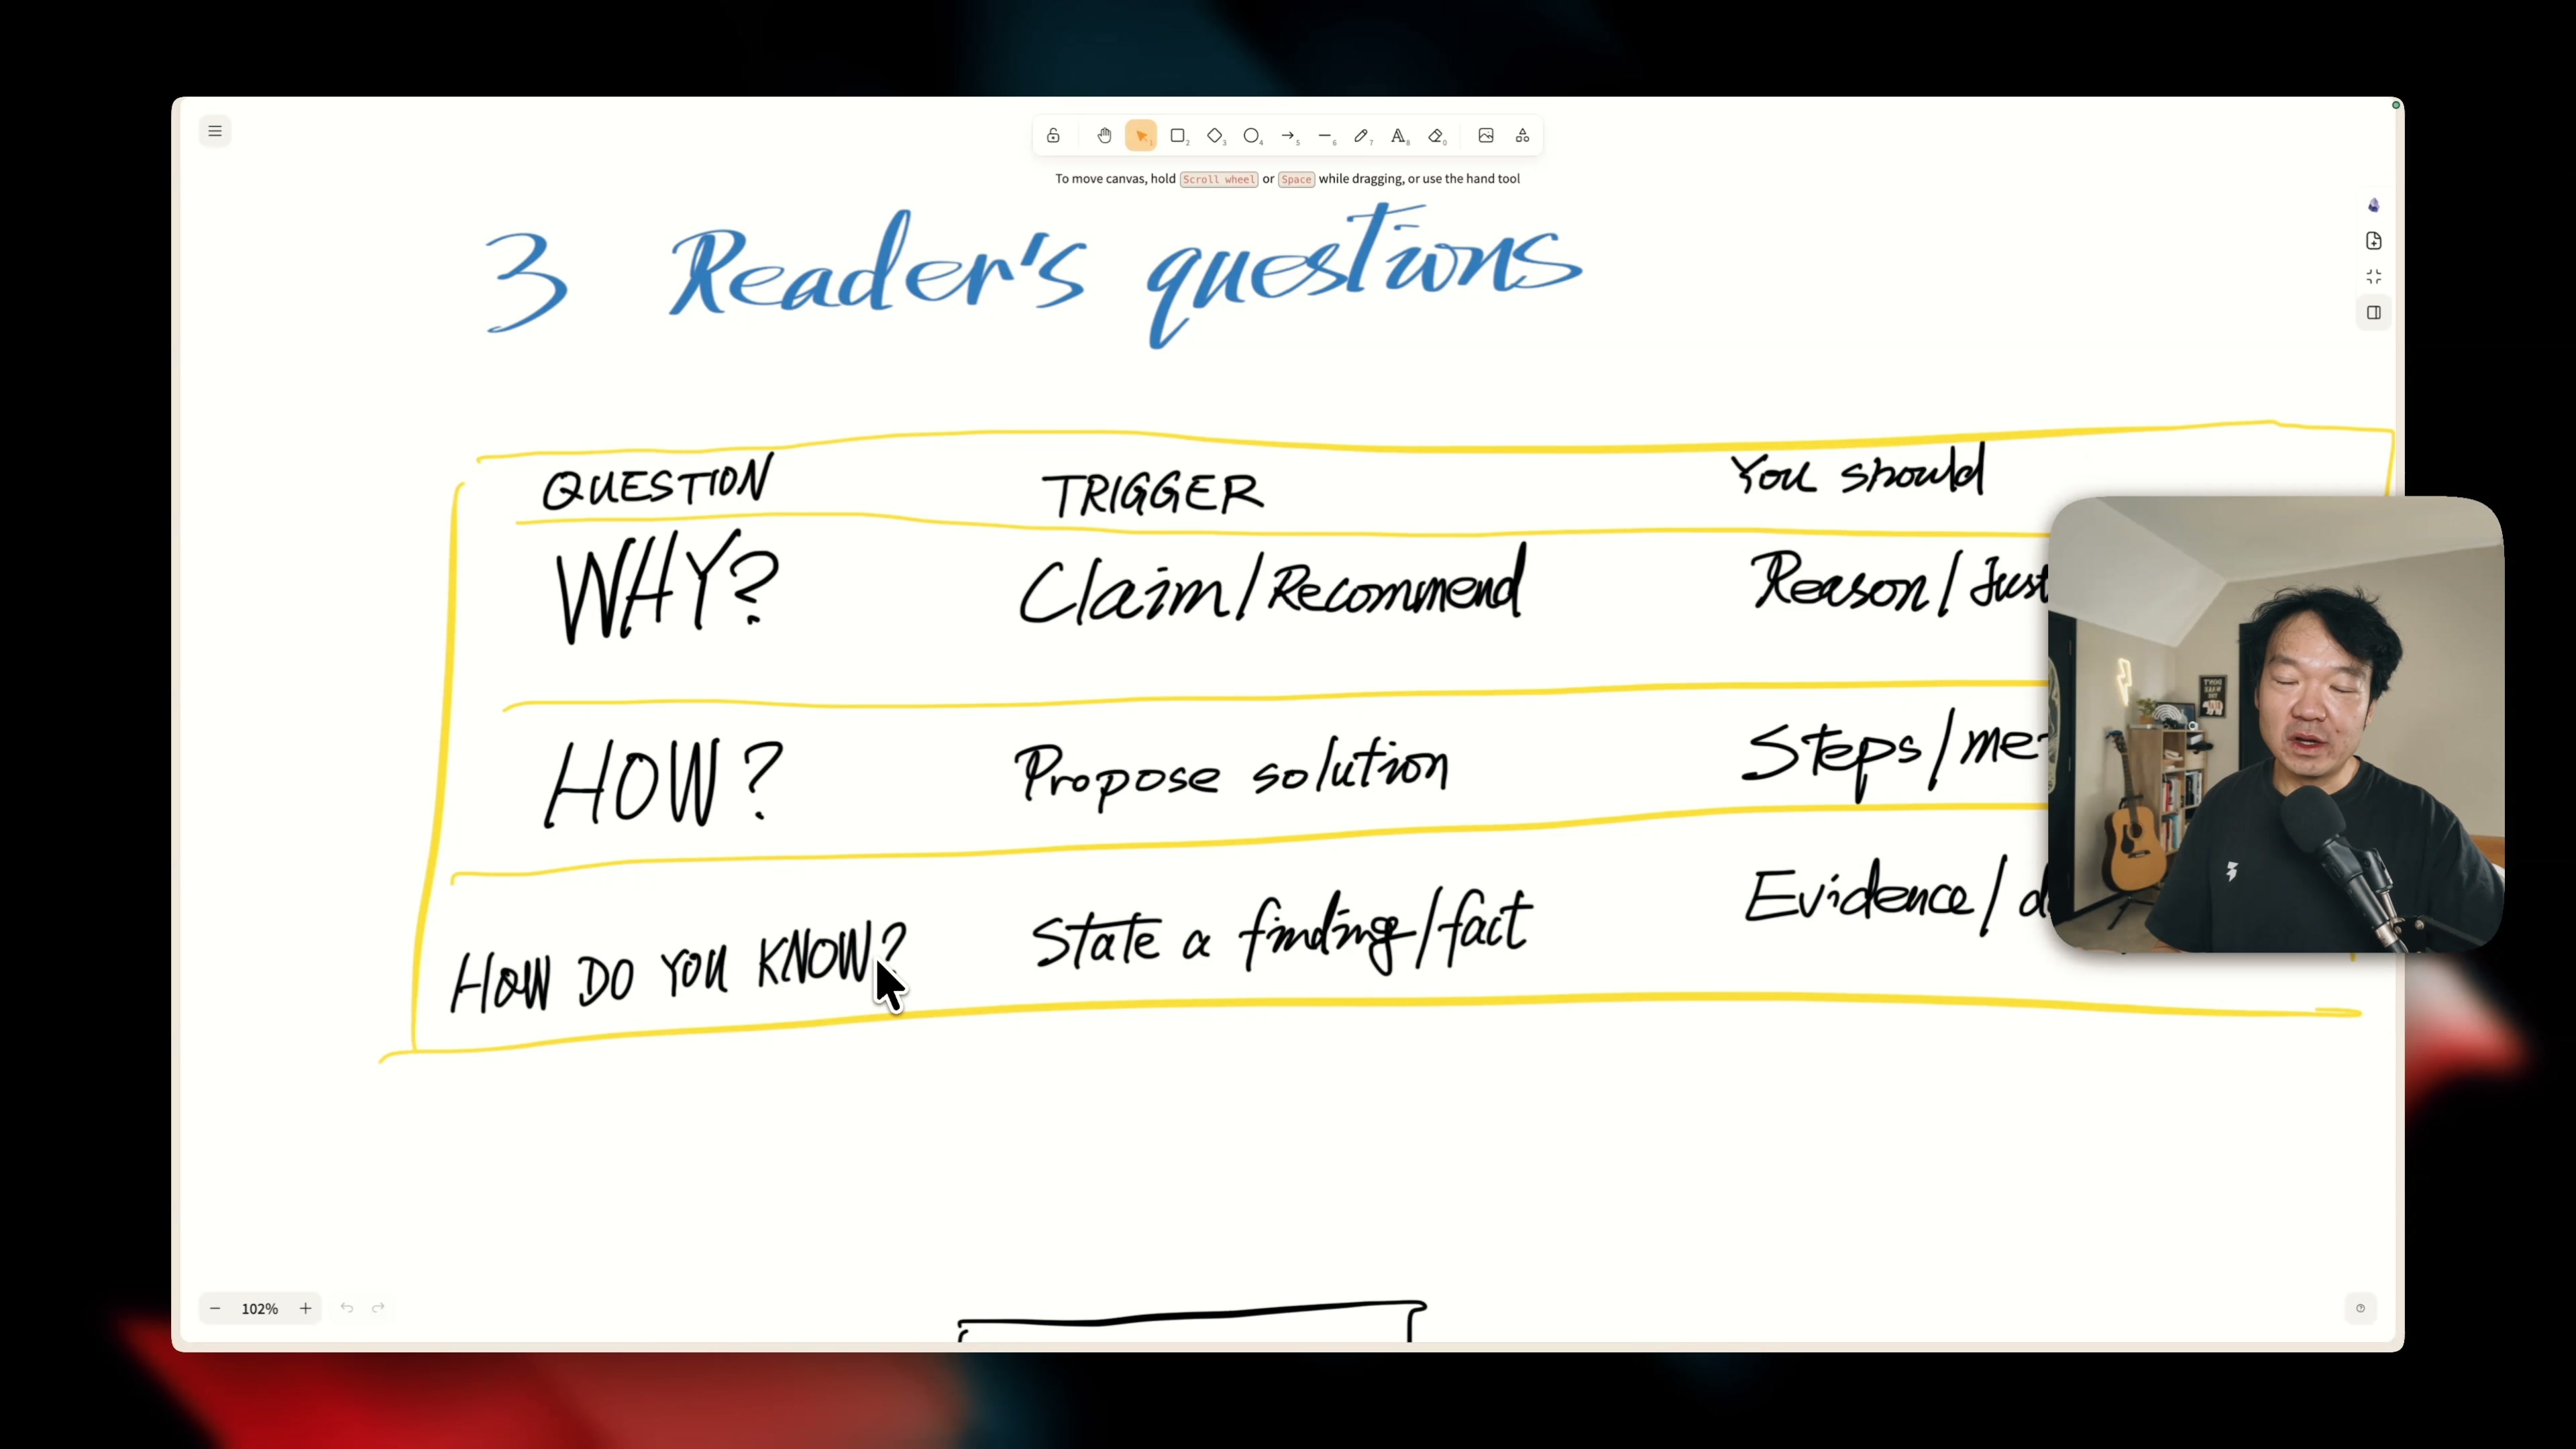 To move canvas, hold Scroll wheel or Space while dragging, or use the hand tool
3 Reader's questions
QUESTION TRIGGER You should
WHY? Claim/Recommend Reason/Just
HOW? Propose solution Steps/me
HOW DO YOU KNOW? State a finding/fact Evidence/d
102%